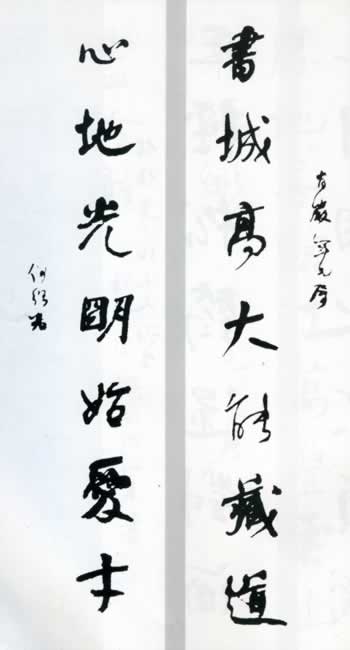 書城高大能藏道
心地光明始愛才
何紹基